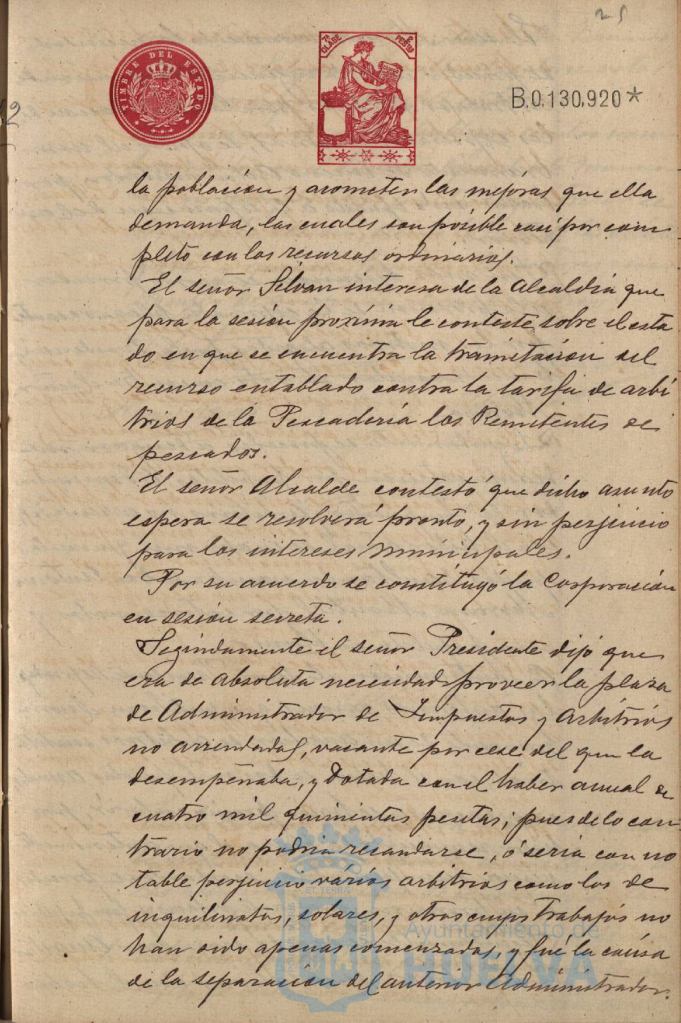 25
TIMBRE DEL ESTADO
7ª CLASE
PESETAS
B.0.130,920*
la población y acometer las mejoras que ella
demanda, las cuales son posible casi por com
pleto con los recursos ordinarios.
El señor Silvan interesa de la Alcaldía que
para la sesión proxima le conteste sobre el esta
do en que se encuentra la tramitación del
recurso entablado contra la tarifa de arbi
trios de la Pescadería los Remitentes de
pescados.
El señor Alcalde contestó que dicho asunto
espera se resolverá pronto, y sin perjuicio
para los intereses municipales.
Por su acuerdo se constituyó la Corporación
en sesión secreta.
Segindamente el señor Presidente dijó que
era de absoluta necesidad proveer la plaza
de Administrador de Impuestos y Arbitrios
no arrendados, vacante por cese del que la
desempeñaba, y dotada con el haber anual de
cuatro mil quinientas pesetas; pues de lo con
trario no podria recaudarse, ó seria con no
table perjuicio vários arbitrios como los de
inquilinatos, solares, y otros cuyos trabajos no
han sido apenas comenzados, y fué la causa
de la separación del anterior Administrador.
Ayuntamiento de
HUELVA